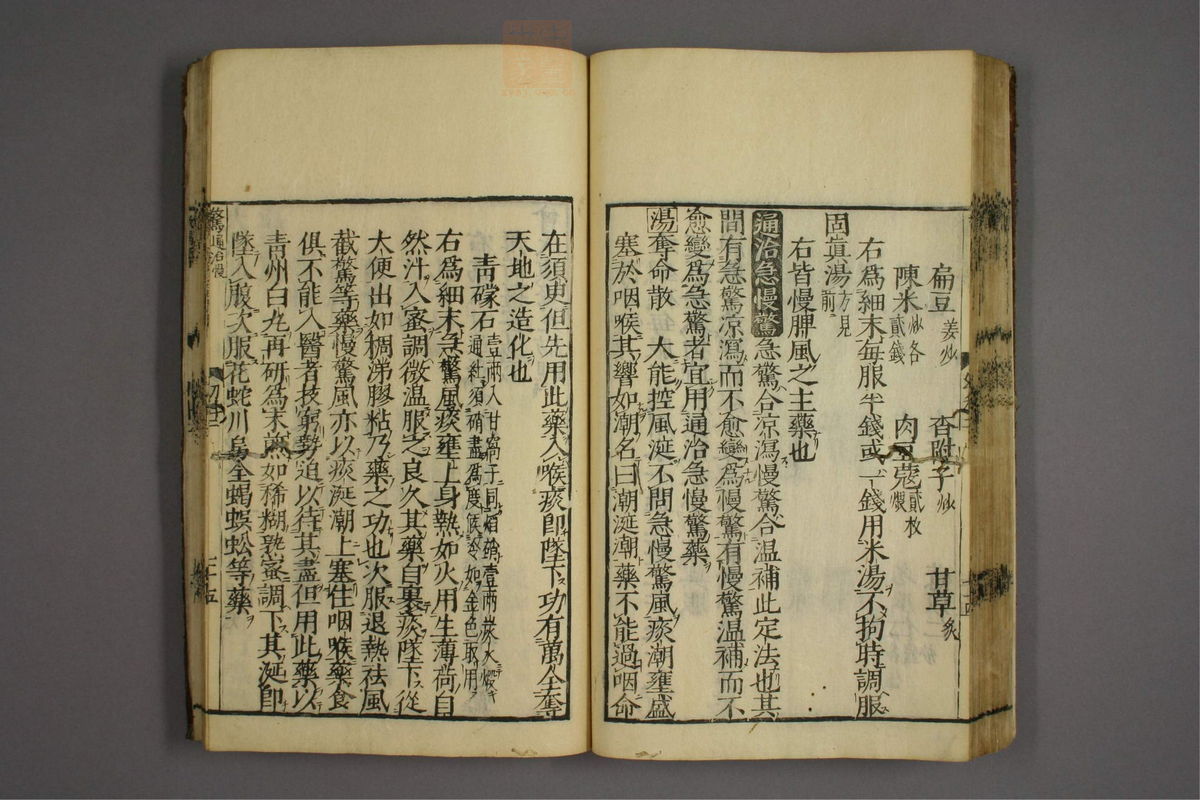 扁豆姜炒 香附子炒 甘草炙
陳米炒各貳錢 肉豆蔻貳枚煨
右爲細末每服半錢或一錢用米湯不拘時調服
固眞湯方見前
右皆慢脾風之主藥也
通治急慢驚急驚合凉瀉慢驚合温補此定法也其
間有急驚凉瀉而不愈變爲慢驚有慢驚温補而不
愈變爲急驚者宜用通治急慢驚藥
奪命散 大能控風涎不問急慢驚風痰潮壅盛
塞於咽喉其響如潮名曰潮涎潮藥不能過咽命
在須臾但先用此藥入喉痰即墜下功有萬全奪
天地之造化也
青礞石壹兩入甘窩子同焰硝壹兩炭火煅通紅須硝盡爲度候冷如金色取用
右爲細末急驚風痰壅上身熱如火用生薄荷自
然汁入蜜調微温服之良久其藥自裹痰墜下從
大便出如稠涕膠粘乃藥之功也次服退熱祛風
截驚等藥慢驚風亦以痰涎潮上塞住咽喉藥食
俱不能入醫者技窮勢迫以待其盡但用此藥以
青州白丸再研爲末煎如稀糊熟蜜調下其涎即
墜入腹次服花蛇川烏全蝎蜈蚣等藥